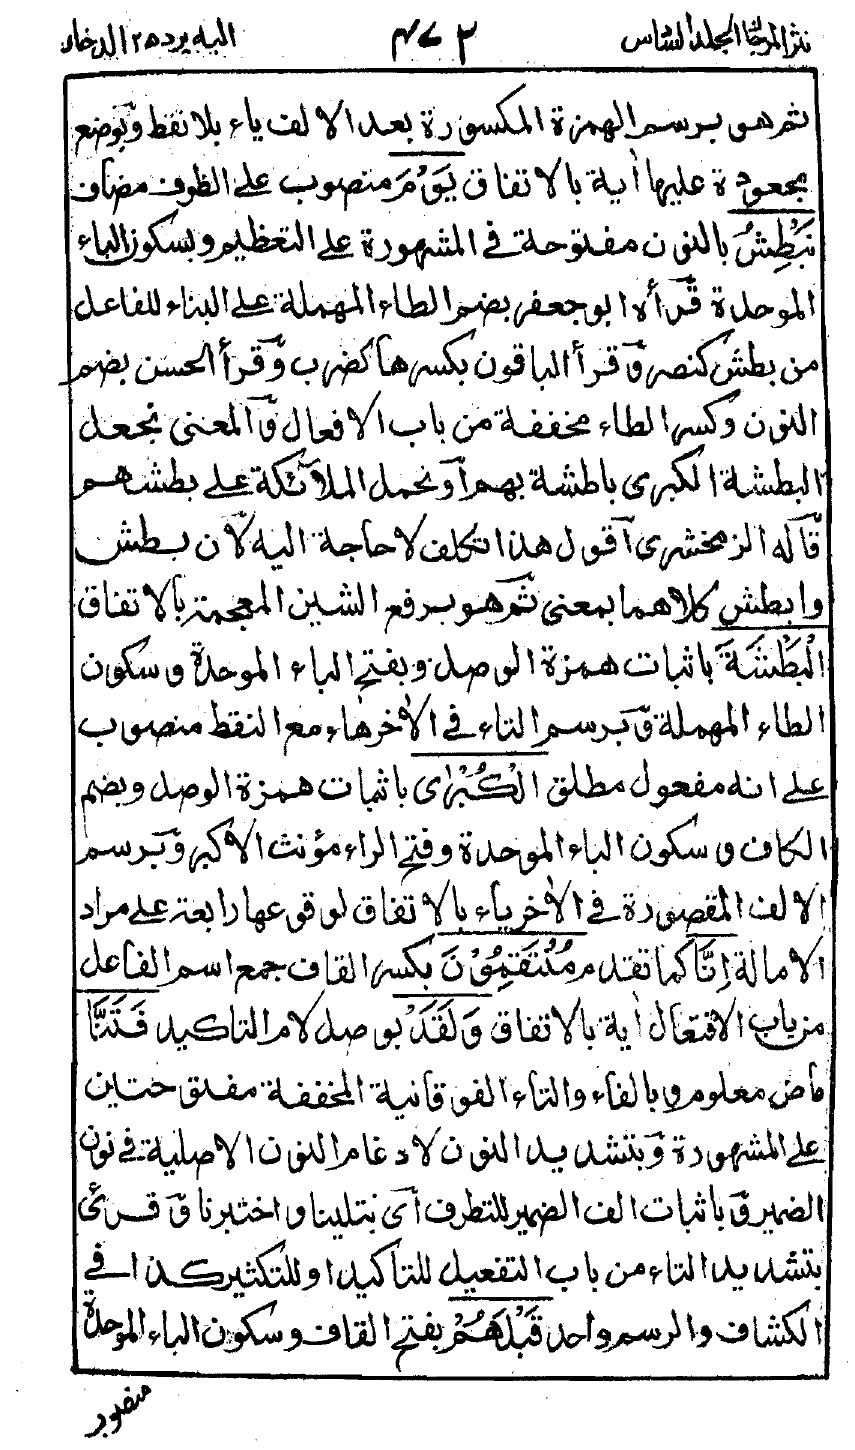 نثر المرجان المجلد السادس ٤٧٢ اليه يرد ٢٥ الدخان
ثم هو برسم الهمزة المكسورة بعد الالف ياء بلا نقط و بوضع
مجعودة عليها اٰية بالاتفاق يَوْمَ منصوب على الظرف مضاف
نَبْطِشُ بالنون مفتوحة في المشهورة على التعظيم و بسكون الباء
الموحدة قرأه ابو جعفر بضم الطاء المهملة على البناء للفاعل
من بطش كنصر و قرأ الباقون بكسرها كضرب و قرأ الحسن بضم
النون و كسر الطاء مخففة من باب الافعال و المعنى نجعل
البطشة الكبرى باطشة بهم او نحمل الملائكة على بطشهم
قاله الزمخشرى اقول هذا تكلف لا حاجة اليه لان بطش
وابطش كلاهما بمعنى ثم هو برفع الشين المعجمة بالاتفاق
الْبَطْشَةَ باثبات همزة الوصل و بفتح الباء الموحدة و سكون
الطاء المهملة و برسم التاء في الاٰخر هاء مع النقط منصوب
على انه مفعول مطلق الْكُبْرٰى باثبات همزة الوصل و بضم
الكاف و سكون الباء الموحدة و فتح الراء مؤنث الاكبر و برسم
الالف المقصورة في الاٰخر ياء بالاتفاق لوقوعها رابعة على مراد
الامالة اِنَّا كما تقدم مُنْتَقِمُوْنَ بكسر القاف جمع اسم الفاعل
من باب الافتعال اٰية بالاتفاق وَلَقَدْ بوصل لام التاكيد فَتَنَّا
ماض معلوم و بالفاء والتاء الفوقانية المخففة مفتوحتين
على المشهورة و بتشديد النون لادغام النون الاصلية في نون
الضمير و باثبات الف الضمير للتطرف اى بتلينا و اختبرنا و قرئ
بتشديد التاء من باب التفعيل للتأكيد او للتكثير كذا في
الكشاف والرسم واحد قَبْلَهُمْ بفتح القاف و سكون الباء الموحدة
منصوب